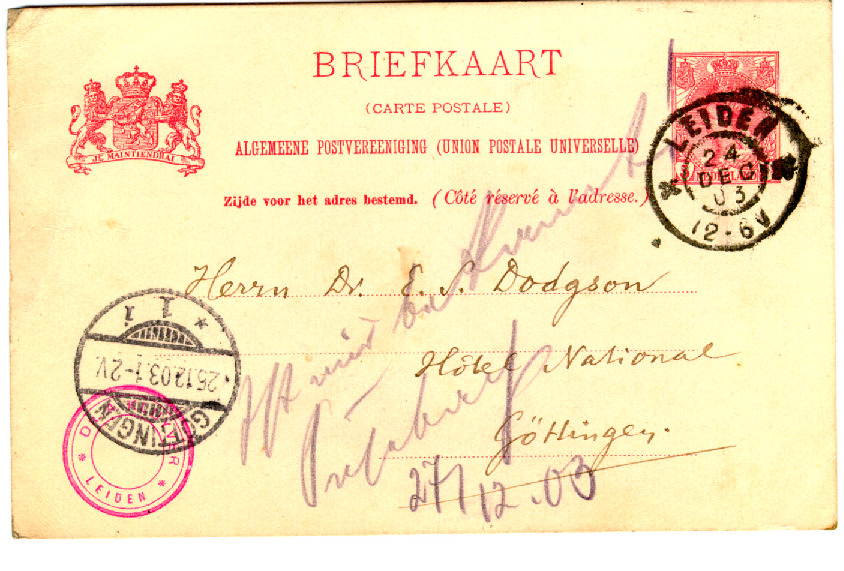 BRIEFKAART
(CARTE POSTALE)
ALGEMEENE POSTVEREENIGING (UNION POSTALE UNIVERSELLE)
Zijde voor het adres bestemd. (Côté réservé à l'adresse.)
JE MAINTIENDRAI
LEIDEN
24
DEC
03
12-6V
Herrn Dr. E. S. Dodgson
Hôtel National
Göttingen.
* 1 i
25.12.03.1-2V.
GÖTTINGEN
* LEIDEN *
27/12.03